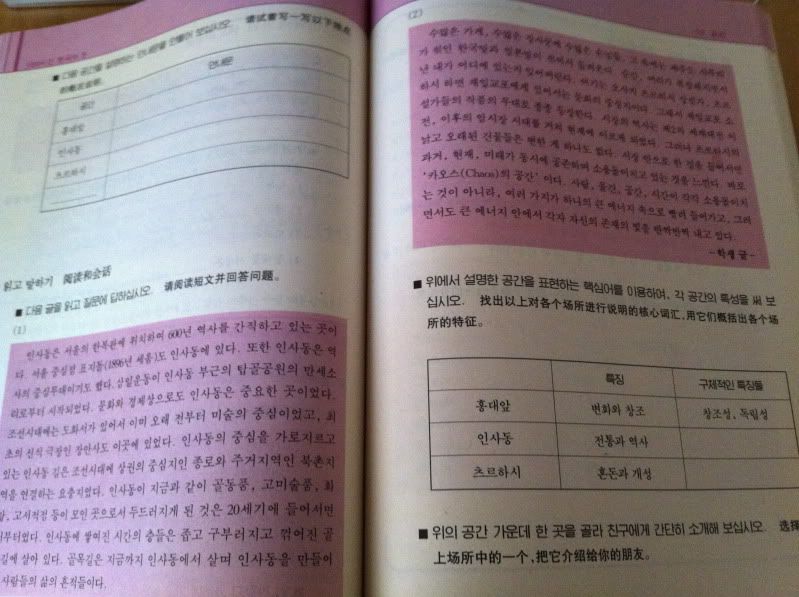 ■ 다음 공간을 설명하는 안내문을 만들어 보십시오. 请试着写一写以下地点
공간 안내문
홍대앞
인사동
츠르하시
읽고 말하기 阅读和会话
■ 다음 글을 읽고 질문에 답하십시오. 请阅读短文并回答问题。
(1)
인사동은 서울의 한복판에 위치하여 600년 역사를 간직하고 있는 곳이
다. 서울 중심점 표지돌(1896년 세움)도 인사동에 있다. 또한 인사동은 역
사의 중심무대이기도 했다. 삼일운동이 인사동 부근의 탑골공원의 만세소
리로부터 시작되었다. 문화와 경제상으로도 인사동은 중요한 곳이었다.
조선시대에는 도화서가 있어서 이미 오래 전부터 미술의 중심이었고, 최
초의 신식 극장인 장안사도 이곳에 있었다. 인사동의 중심을 가로지르고
있는 인사동 길은 조선시대에 상권의 중심지인 종로와 주거지역인 북촌지
역을 연결하는 요충지였다. 인사동이 지금과 같이 골동품, 고미술품, 화
랑, 고서적점 등이 모인 곳으로서 두드러지게 된 것은 20세기에 들어서면
서부터였다. 인사동에 쌓여진 시간의 층들은 좁고 구부러지고 꺾어진 골
길에 살아 있다. 골목길은 지금까지 인사동에서 살며 인사동을 만들어
사람들의 삶의 흔적들이다.
(2)
수많은 가게, 수많은 장사술에 수많은 손님들, 그 속에는 제주도 사투리
가 섞인 한국말과 일본말이 섞여서 들려온다. 순간, 여러가
년 대가 어디에 있는지 잊어버린다. 여기는 오사카 츠르하시 상점가. 츠르
하시 하면 재일교포에게 있어서는 문화의 중심지이다. 그래서 재일교포 소
설가들의 작품의 무대로 종종 등장한다. 시장의 역사는 제2차 세계대전 이
전, 이후의 암시장 시대를 거쳐 현재에 이르게 되었다. 그러나 츠르하시의
낡고 오래된 건물들은 변한 게 하나도 없다. 시장 안으로 한 걸음 들어서면
과거, 현재, 미래가 동시에 공존하며 소용돌이치고 있는 것을 느낀다. 바로
‘카오스(Chaos)의 공간’ 이다. 사람, 물건, 공간, 시간이 각각 소용돌이치
는 것이 아니라, 여러 가지가 하나의 큰 에너지 속으로 빨려 들어가고, 그러
면서도 큰 에너지 안에서 각자 자신의 존재의 빛을 반짝반짝 내고 있다.
- 학생 글 -
■ 위에서 설명한 공간을 표현하는 핵심어를 이용하여, 각 공간의 특성을 써 보
십시오. 找出以上对各个场所进行说明的核心词汇，用它们概括出各个场
所的特征。
특징 구체적인 특징들
홍대앞 변화와 창조 창조성, 독립성
인사동 전통과 역사
츠르하시 혼돈과 개성
■ 위의 공간 가운데 한 곳을 골라 친구에게 간단히 소개해 보십시오. 选择
上场所中的一个，把它介绍给你的朋友。